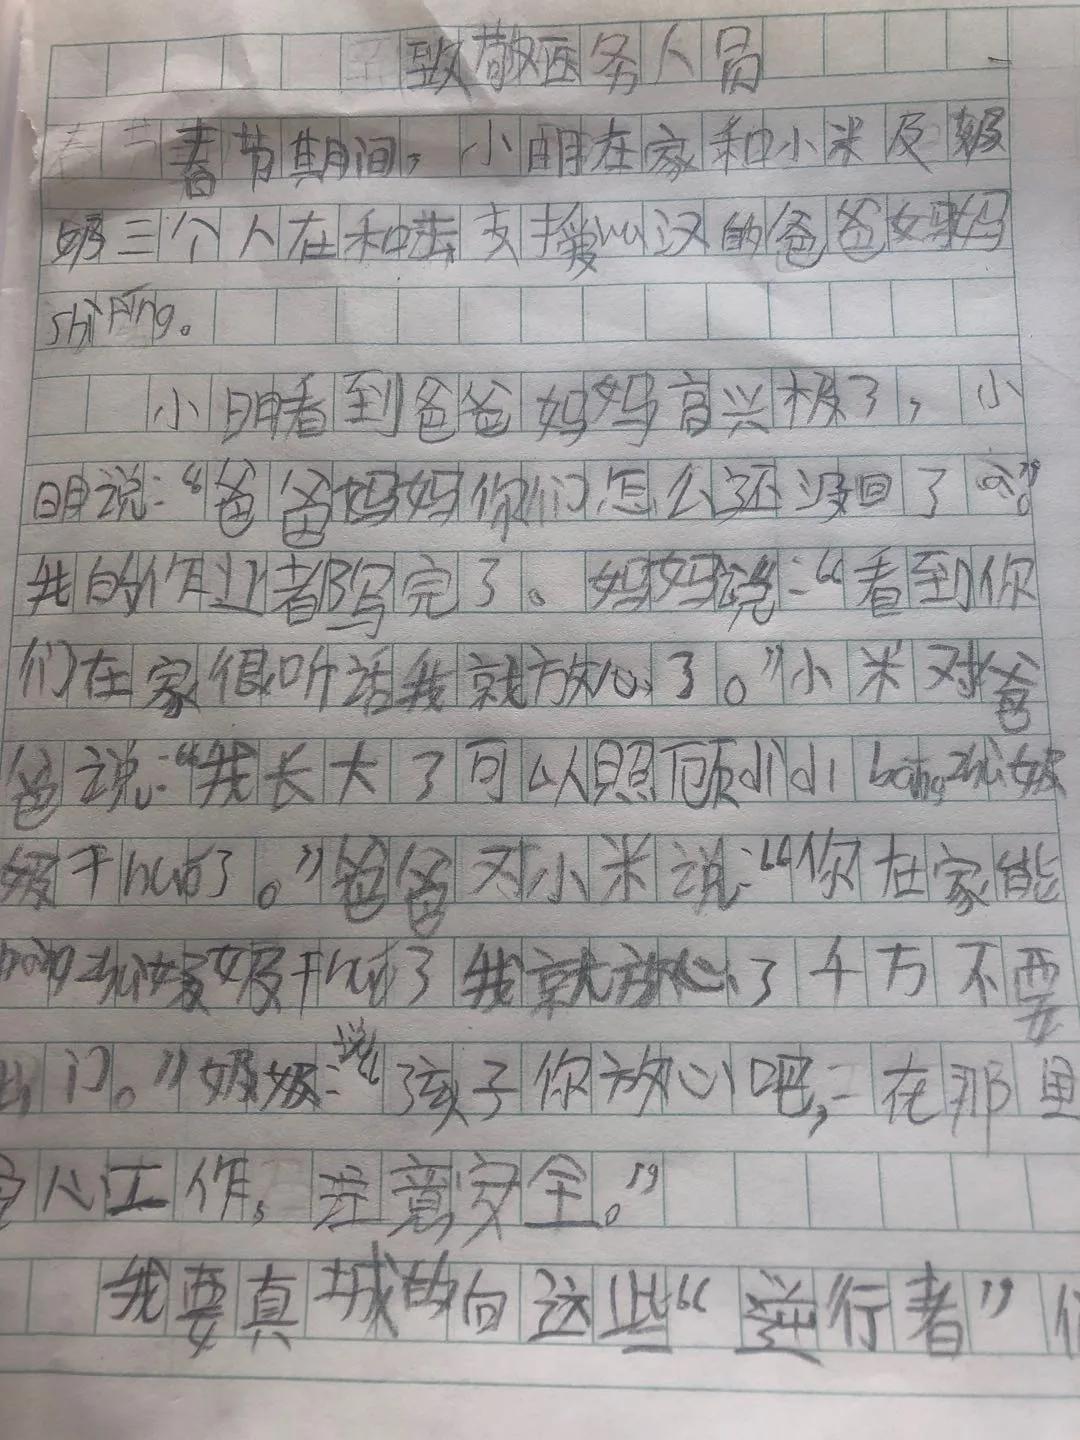 致敬医务人员
春节期间，小明在家和小米及奶
奶三个人在和去支援wu汉的爸爸妈妈
shi ping。
小明看到爸爸妈妈高兴极了，小
明说：“爸爸妈妈你们怎么还没回了
我的作业都写完了。妈妈说：“看到你
们在家很听话我就放心了。”小米对爸
爸说：“我长大了可以照顾didi bang zhu奶
奶干huo了。”爸爸对小米说：“你在家能
bang zhu奶奶干huo了我就放心了千万不要
出门。”奶奶说：“孩子你放心吧，在那里
安心工作，注意安全。”
我要真城的向这些“逆行者”